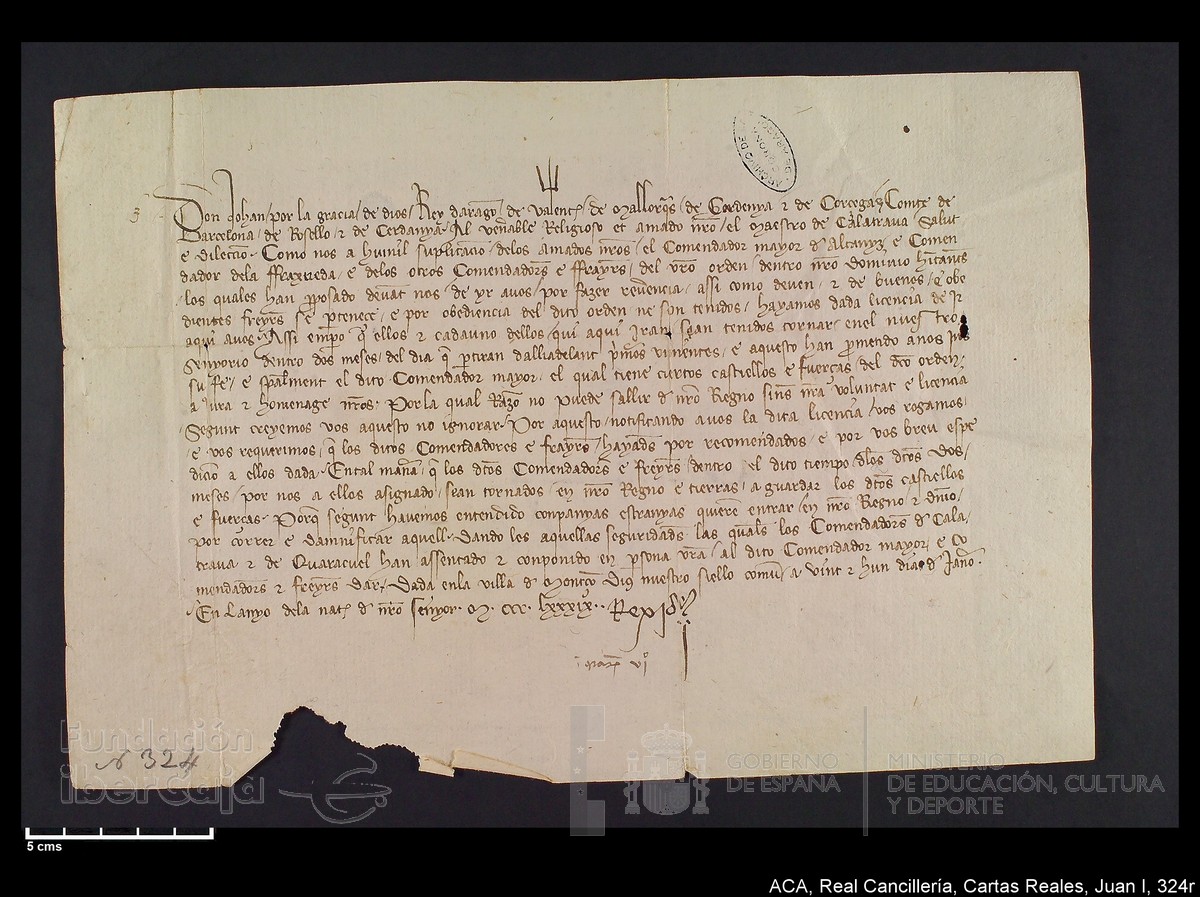 Don Johan por la gracia de dios Rey darago de Valenc de Mallorqs de Cerdenya e de Corcega e Comte de
Barcelona de Rosello e de Cerdanya Al venable Religioso et amado nro el Maestro de Calatrava Salut
e dileccio Como nos a humil suplicacio delos amados nros el Comendador mayor d Alcanyz e Comen
dador dela ffraxneda e delos otros Comendadors e ffrayrs del vro orden dentro nro dominio
los quales han pposado devat nos de yr a vos por fazer revencia assi como deven e de buenos e obe
dientes freyrs se ptenece e por obediencia del dito orden ne son tenidos hayamos dada licencia de ir
aqui avos Assi empo q ellos e cadauno dellos qui aqui iran sean tenidos tornar enel nuestro
Senyorio dentro dos meses del dia q ptiran dalliadelant pmos vinientes e aquesto han prometido anos
su fe e spalment el dito Comendador mayor el qual tiene ciertos castiellos e fuerças del dto orden
a jura e homenage nros Por la qual Razo no puede sallir d nro Regno sins nra voluntat e licencia
Segunt creyemos vos aquesto no ignorar Por aquesto notificando avos la dita licencia vos rogamos
e vos requerimos q los ditos Comendadores e frayrs hayads por recomendados e por vos breu espe
dicio a ellos dada En tal mana q los dtos Comendadors e freyrs dentro el dito tiempo dlos dtos dos
meses por nos a ellos asignado sean tornados en nro Regno e tierras a guardar los dtos castiellos
e fuerças Porq segunt havemos entendido conpanyas estranyas quiere entrar en nro Regno e
por correr e damnificar aquell Dando les aquellas seguridads las quals los Comendadors d Cala
trava e de Quaracuel han assentado e conponido en psona vra al dito Comendador mayor e Co
mendadors e freyrs dar Dada enla villa d Montço dius nuestro siello comu a vint e hun dias d Janº
En lanyo dela nat d nro senyor M ccc lxxxix Rex Jo
ARCHIVO DE
N 324
Fundación
ibercaja
GOBIERNO
DE ESPAÑA
MINISTERIO
DE EDUCACIÓN, CULTURA
Y DEPORTE
5 cms
ACA, Real Cancillería, Cartas Reales, Juan I, 324r